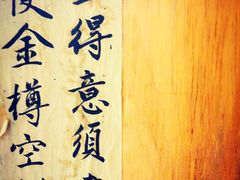 得意須
使金樽空